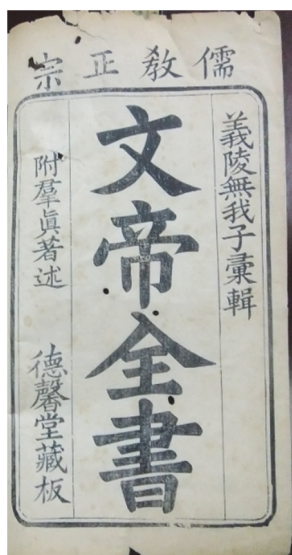 儒教正宗
義陵無我子彙輯
文帝全書
附羣眞著述
德馨堂藏板